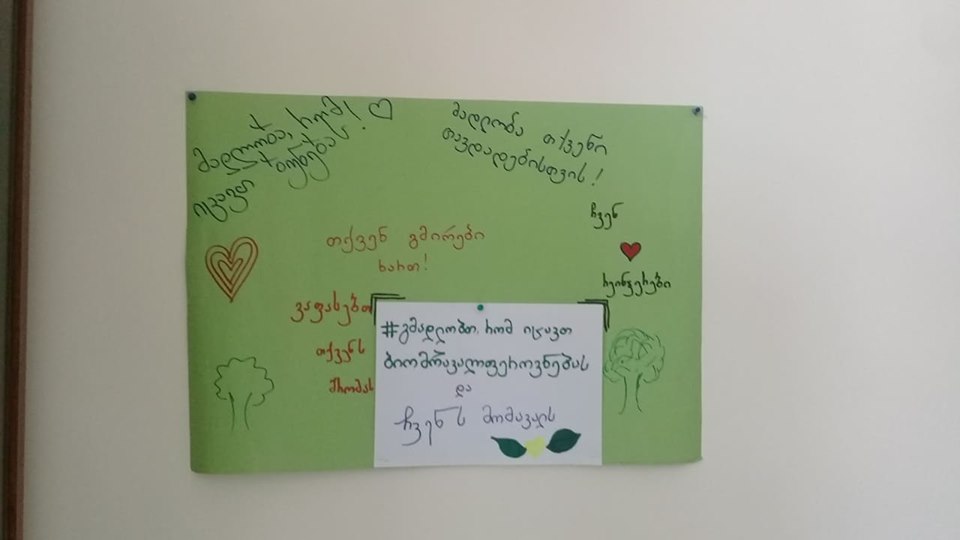 მადლობა, რომ
იცავთ ბუნებას!
მადლობა თქვენი
თავდადებისთვის!
ჩვენ
რეინჯერები
თქვენ გმირები
ხართ!
ვაფასებთ
თქვენს
შრომას
#გმადლობთ, რომ იცავთ
ბიომრავალფეროვნებას
და
ჩვენს მომავალს